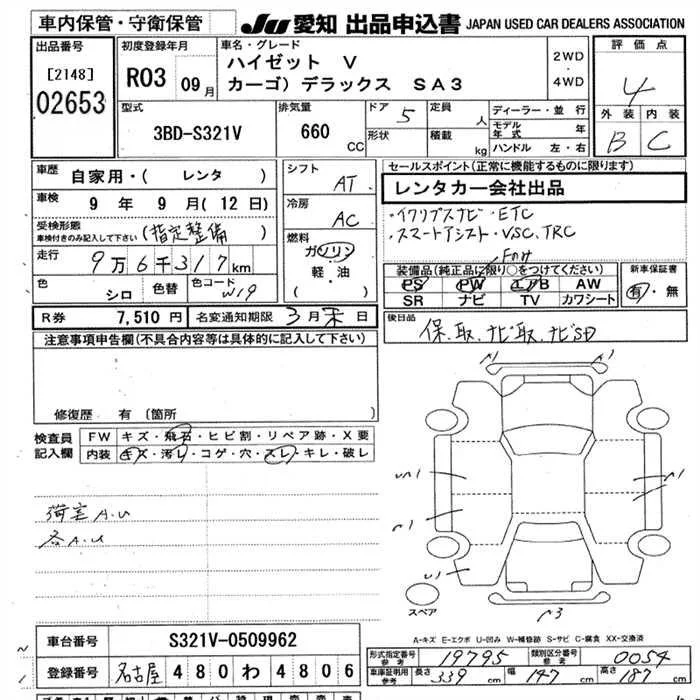 車内保管・守衛保管
JU 愛知 出品申込書 JAPAN USED CAR DEALERS ASSOCIATION
出品番号 [2148] 02653
初度登録年月 R03 09月
車名・グレード ハイゼット V
カーゴ) デラックス SA3
2WD・4WD
評価点 4
外装 内装
B C
型式 3BD-S321V
排気量 660 CC
ドア 5 定員 人
形状 積載 kg
ディーラー・並行
モデル年式 年
ハンドル 左・右
車歴 自家用・( レンタ )
車検 9年9月(12日)
受検形態 車検付きのみ記入して下さい (指定整備)
走行 9万6千317km
色 シロ 色替 色コード W19
シフト AT
冷房 AC
燃料 ガソリン・軽・油 ( )
セールスポイント(正常に機能するものに限ります)
レンタカー会社出品
・イクリプスナビ・ETC
・スマートアシスト・VSC、TRC
装備品(純正品に限り○をつけてください)
PS PW エアB AW
SR ナビ TV カワシート
新車保証書 有・無
R券 7,510円 名変通知期限 3月末日
後日品 保、取、ナビ取、ナビSD
注意事項申告欄(不具合内容等は具体的に記入して下さい)
修復歴 有 〔箇所
検査員記入欄
FW キズ・飛石・ヒビ割・リペア跡・X要
内装 キズ・汚レ・コゲ・穴・スレ・キレ・破レ
荷室A.U
各A.U
スペア
A-キズ E-エクボ U-凹み W-補修跡 S-サビ C-腐食 XX-交換済
車台番号 S321V-0509962
登録番号 名古屋 480 わ 4806
形式指定番号 参考 19795 類別区分番号 参考 0054
車庫証明用 参考 長さ 339 cm 幅 147 cm 高さ 187 cm